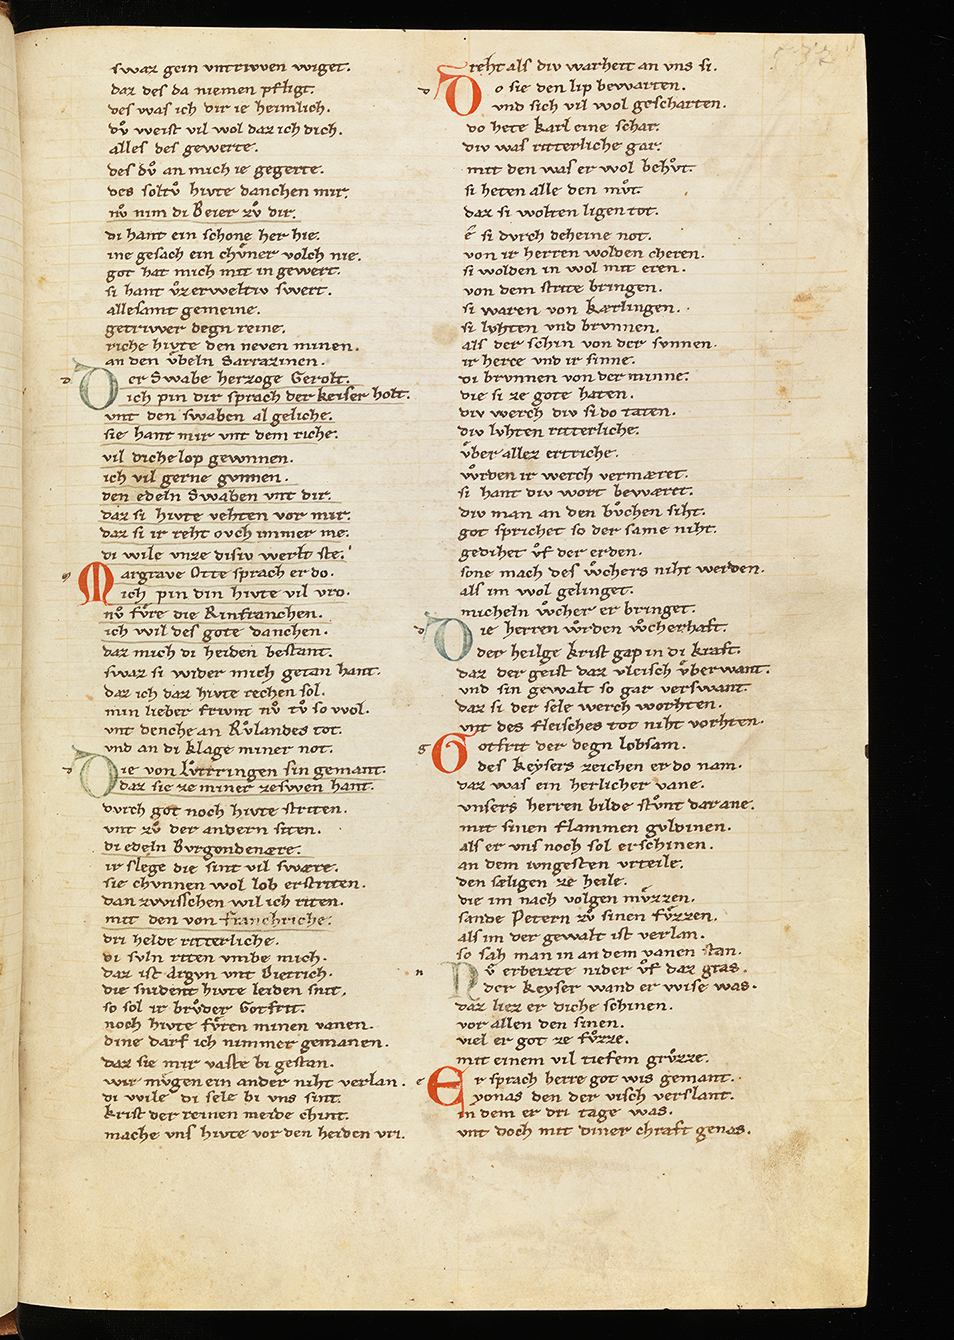 swaz gein vntriwen wiget.
daz des da niemen pfligt.
des was ich dir ie heimlich.
dv̊ weist vil wol daz ich dich.
alles des gewerte.
des dv̊ an mich ie gegerte.
des soltv̊ hivte danchen mir.
nv̊ nim di Beier zv̊ dir.
di hant ein schone her hie.
ine gesach ein chv̊ner volch nie.
got hat mich mit in gewert.
si hant v̊zerweltiv swert.
allesamt gemeine.
getriwer degn reine.
riche hivte den neven minen.
an den v̊beln Sarrazinen.
Der Swabe herzoge Gerolt.
ich pin dir sprach der keiser holt.
vnt den swaben al geliche.
sie hant mir vnt dem riche.
vil diche lop gewnnen.
ich vil gerne gunnen.
den edeln Swaben vnt dir.
daz si hivte vehten vor mir.
daz si ir reht ovch immer me.
di wile vnze disiv werlt ste.
Margrave Otte sprach er do.
ich pin din hivte vil vro.
nv̊ fv̊re die Rinfranchen.
ich wil des gote danchen.
daz mich di heiden bestant.
swaz si wider mich getan hant.
daz ich daz hivte rechen sol.
min lieber frivnt nv̊ tv̊ so wol.
vnt denche an Rv̊landes tot.
vnd an di klage miner not.
Die von Lvttringen sin gemant.
daz sie ze miner zeswen hant.
dvrch got noch hivte striten.
vnt zv̊ der andern siten.
di edeln Bvrgondenære.
ir slege die sint vil swære.
sie chvnnen wol lob erstriten.
dan zwisschen wil ich riten.
mit den von franchriche.
dri helde ritterliche.
di svln riten vmbe mich.
daz ist Argvn vnt Dietrich.
die mvͦzent hivte leiden snit.
so sol ir brv̊der Gotfrit.
noch hivte fv̊ren minen vanen.
dine darf ich nimmer gemanen.
daz sie mir vaste bi gestan.
wir mvgen ein ander niht verlan.
di wile di sele bi vns sint.
krist der reinen meide chint.
mache vns hivte vor den heiden vri.
reht als div warheit an vns si.
Do sie den lip bewarten.
vnd sich vil wol gescharten.
do hete karl eine schar.
div was ritterliche gar.
mit den was er wol behv̊t.
si heten alle den mv̊t.
daz si wolten ligen tot.
e si dvrch deheine not.
von ir herren wolden cheren.
si wolden in wol mit eren.
von dem strite bringen.
si waren von kærlingen.
si lvhten vnd brvnnen.
als der schin von der svnnen.
ir herce vnd ir sinne.
di brvnnen von der minne.
die si ze gote haten.
div werch div si do taten.
div lvhten ritterliche.
v̊ber allez ertriche.
wrden ir werch vermæret.
si hant div wort bewæret.
div man an den bv̊chen siht.
got sprichet so der same niht.
gedihet v̊f der erden.
sone mach des wchers niht werden.
als im wol gelinget.
micheln wcher er bringet.
Die herren wrden wcherhaft.
der heilge krist gap in di kraft.
daz der geist daz vleisch v̊berwant.
vnd sin gewalt so gar verswant.
daz si der sele werch worhten.
vnt des fleisches tot niht vorhten.
Gotfrit der degn lobsam.
des keysers zeichen er do nam.
daz was ein herlicher vane.
vnsers herren bilde stv̊nt dar ane.
mit sinen flammen gvldinen.
als er vns noch sol erschinen.
an dem ivngesten vrteile.
den sæligen ze heile.
die im nach volgen mv̊zzen.
sande Petern zv̊ sinen fv̊zzen.
als im der gewalt ist verlan.
so sah man in an dem vanen stan.
Nv̊ erbeizte nider v̊f daz gras.
der keyser wand er wise was.
daz liez er diche schinen.
vor allen den sinen.
viel er got ze fv̊zze.
mit einem vil tiefem grv̊zze.
Er sprach herre got wis gemant.
yonas den der visch verslant.
in dem er dri tage was.
vnt doch mit diner chraft genas.